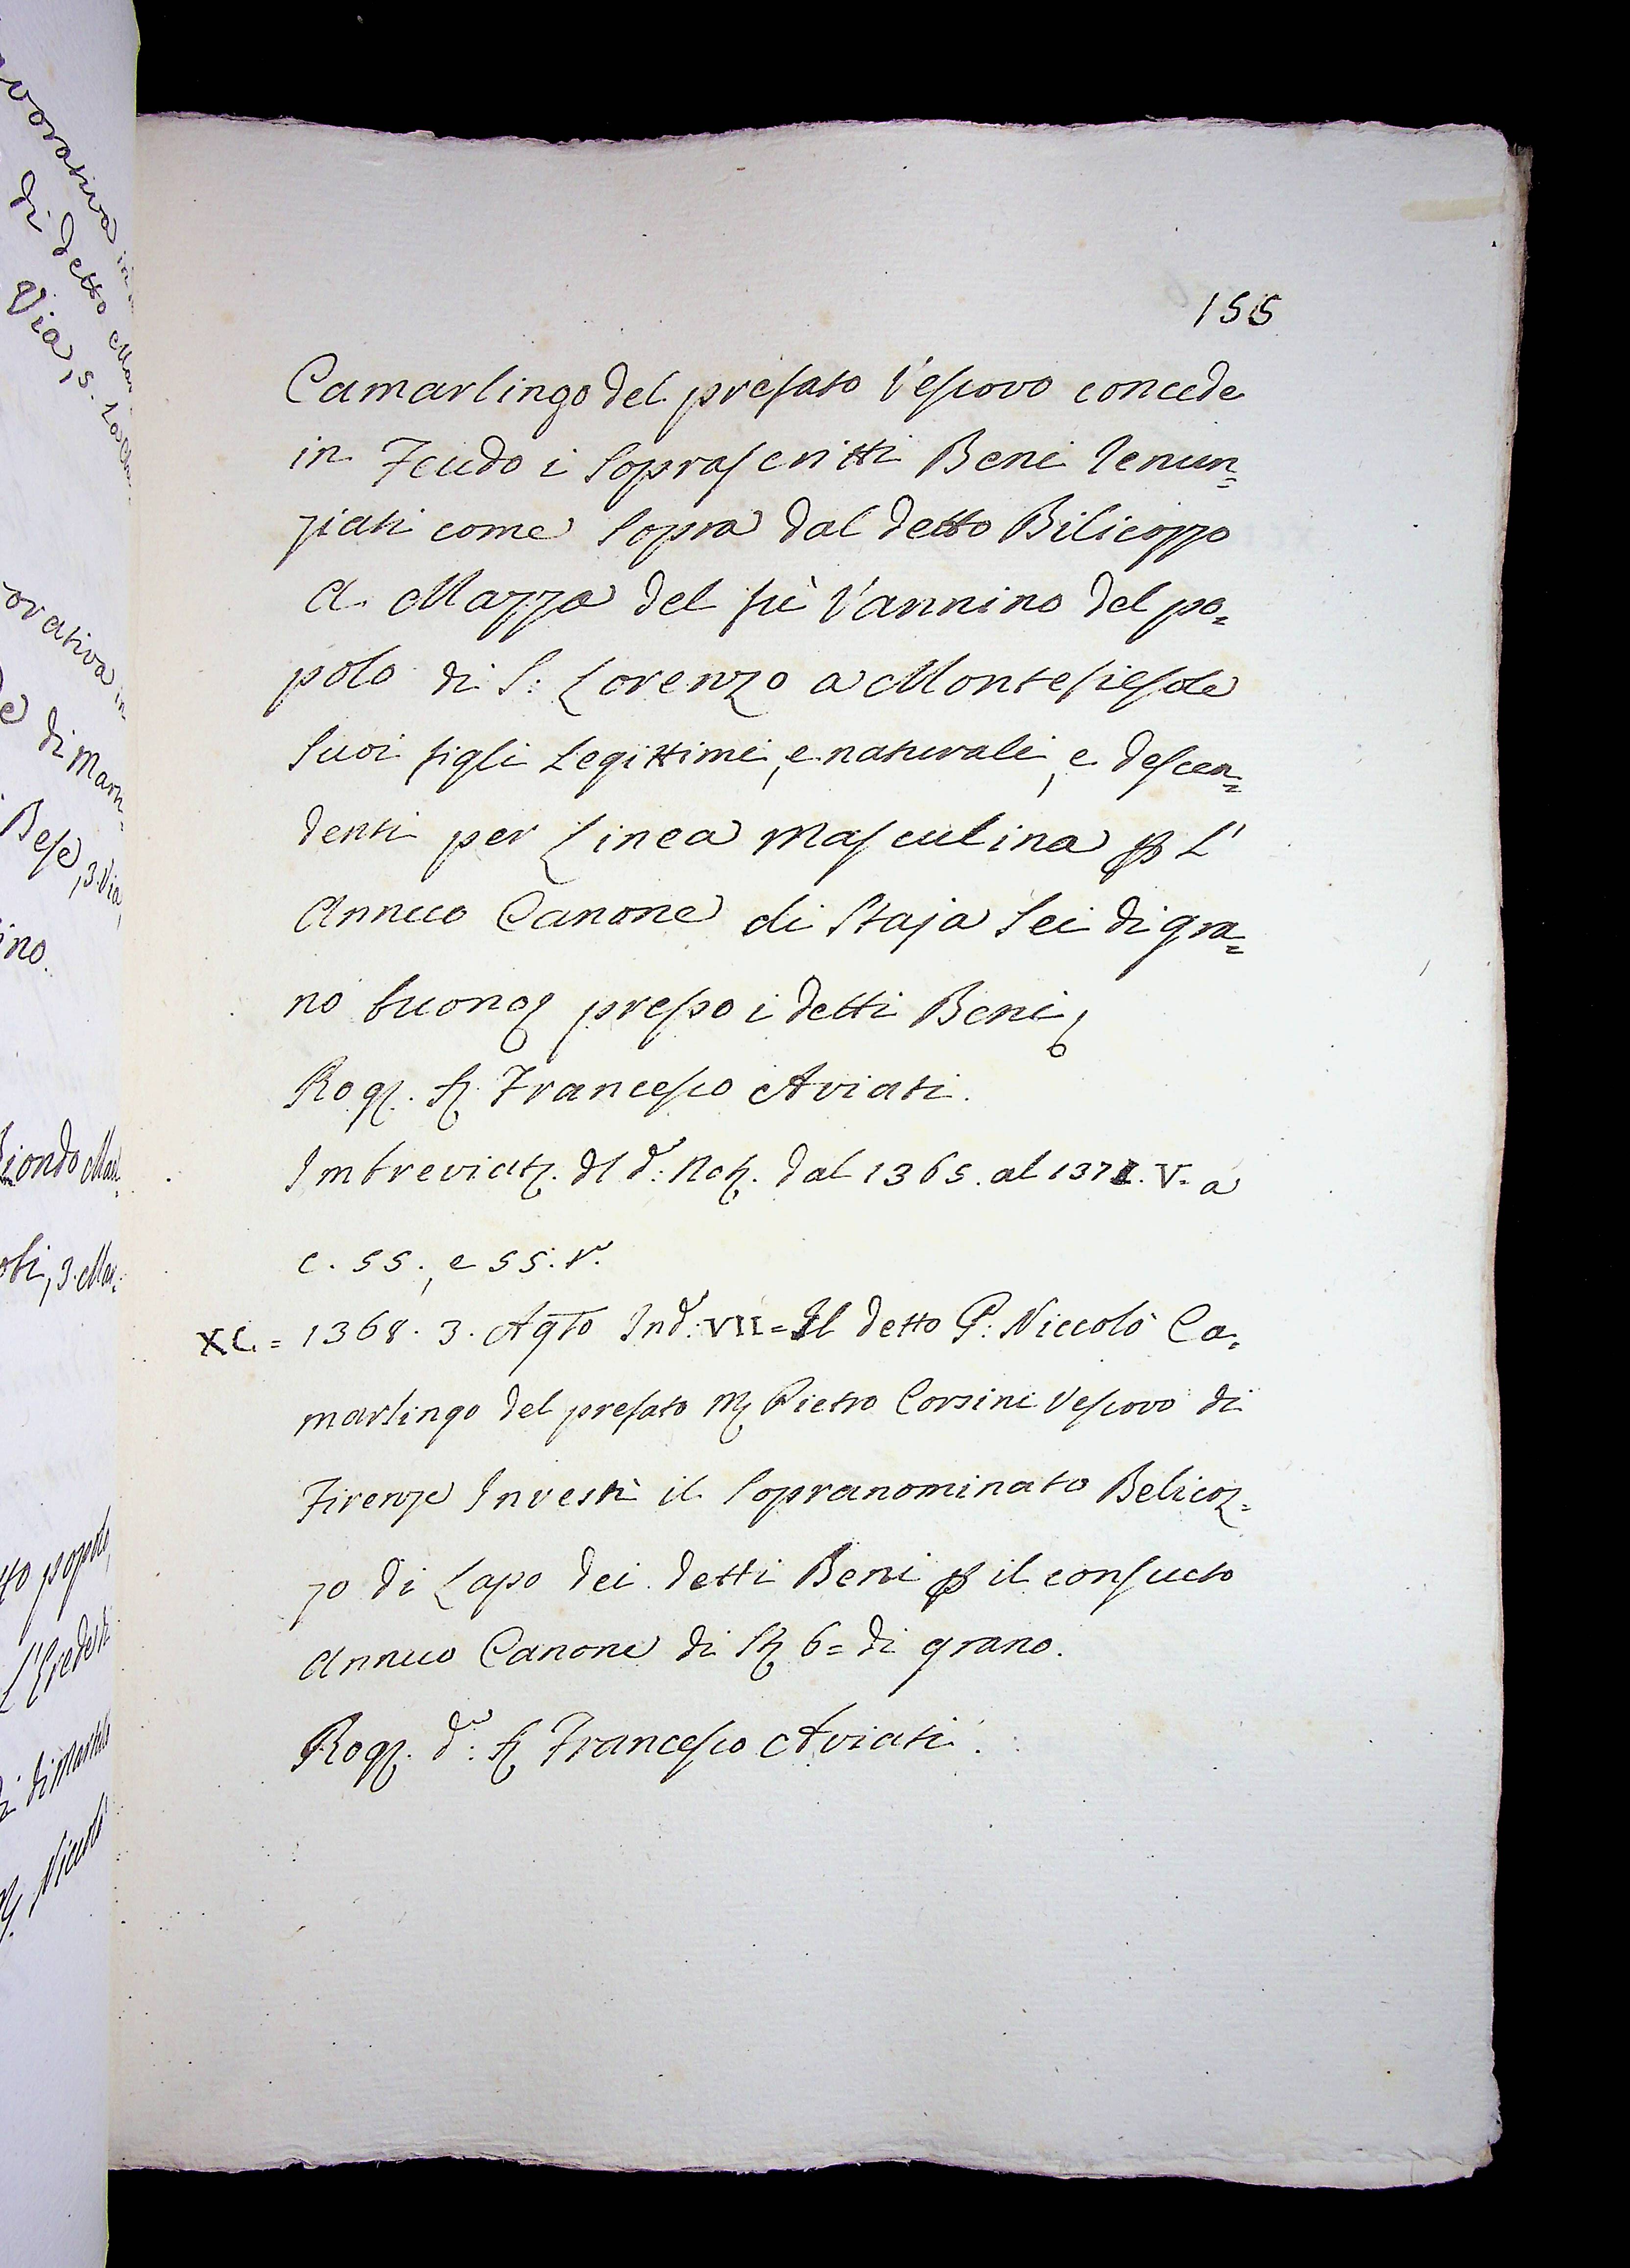 155
Camarlingo del prefato Vescovo concede
in Feudo i Soprascritti Beni Renun=
ziati come Sopra dal detto Bilicozzo
A. Mazza del fù Vannino del po=
polo di S: Lorenzo a Montefiesole
Suoi figli Legittimi, e naturali, e descen=
denti per Linea Masculina p L'
Annuo Canone di Staja Sei di gra=
no buono presso i detti Beni,
Rog. S. Francesco Aviati.
Imbreviat. dl d.º: Not. dal 1365. al 1371. V. a
c. 55., e 55. t.º
XC. = 1368. 3. Agto Ind.: VII = Il detto P: Niccolò Ca=
marlingo del prefato M. Pietro Corsini Vescovo di
Firenze Investì il Sopranominato Belicoz=
zo di Lapo dei detti Beni p il consueto
Annuo Canone di St. 6= di grano.
Rog. d.º: S. Francesco Aviati.
vorativa in
di detto Mar
Via, 5. La
orativa in
e di Mart
Bese, 3. Via,
ino.
iondo Mar
oli, 3. Mar:
tto popolo,
L'Erede di
di Martello
M. Niccolò